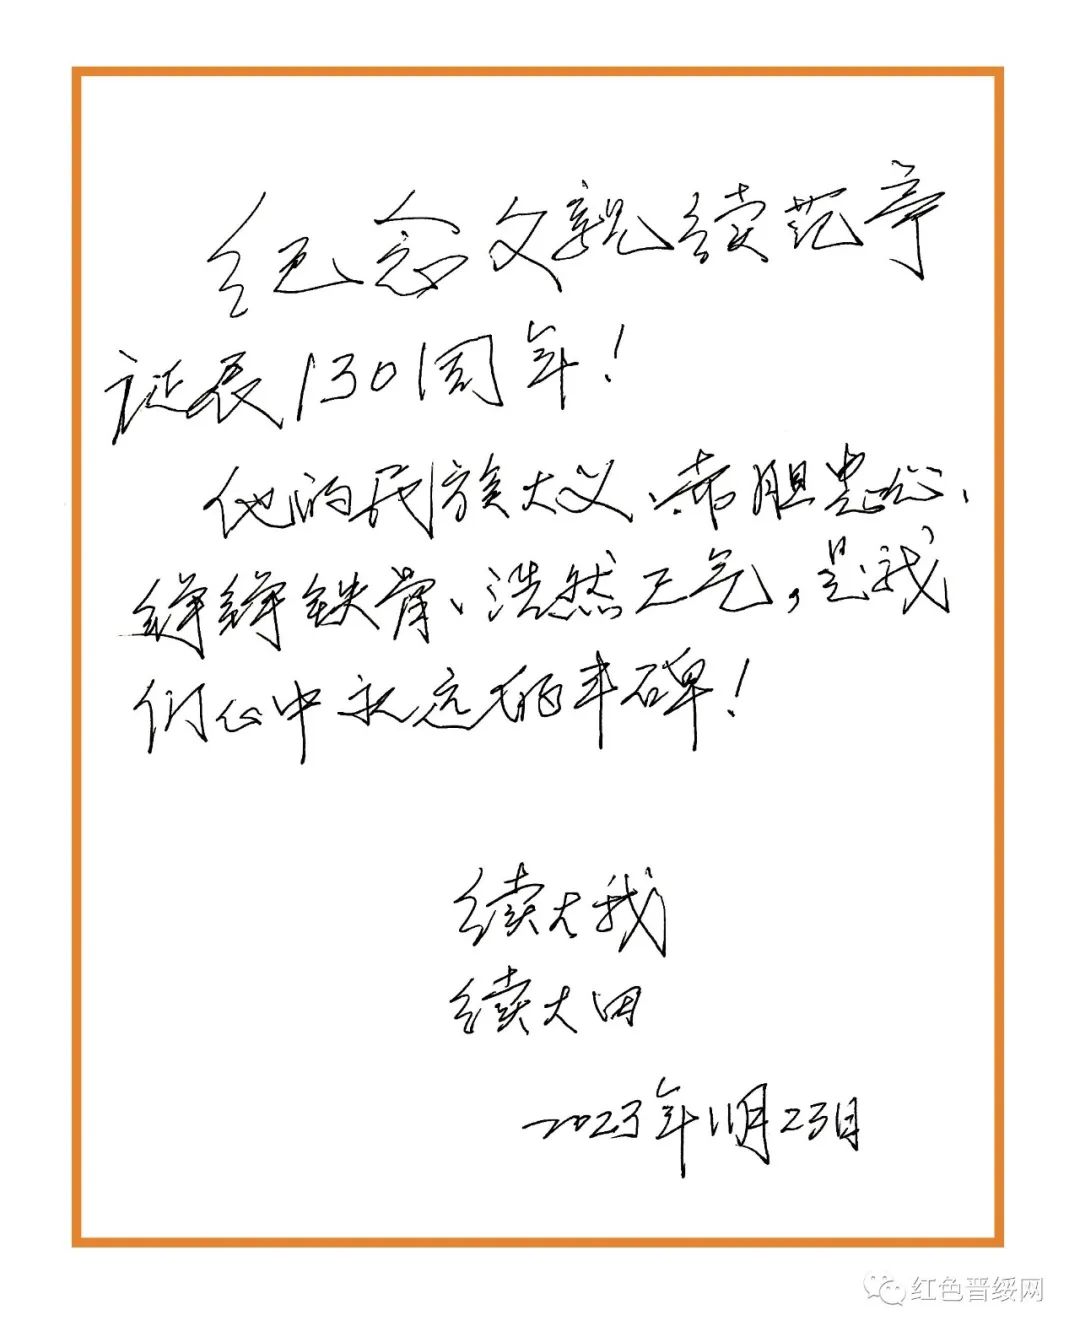 纪念父亲续范亭
诞辰130周年!
他的民族大义、赤胆忠心、
铮铮铁骨、浩然正气,是我
们心中永远的丰碑!
续大我
续大田
2023年11月23日
红色晋绥网